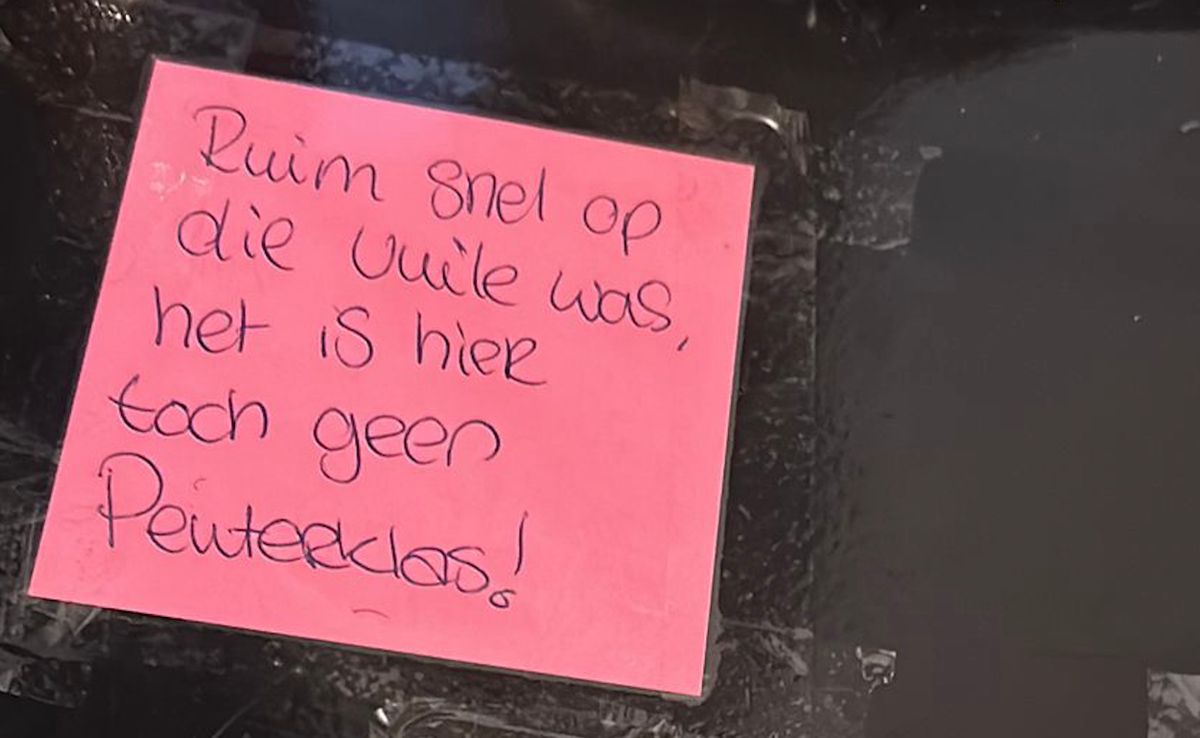 Ruim snel op
die vuile was,
het is hier
toch geen
Peuterklas!